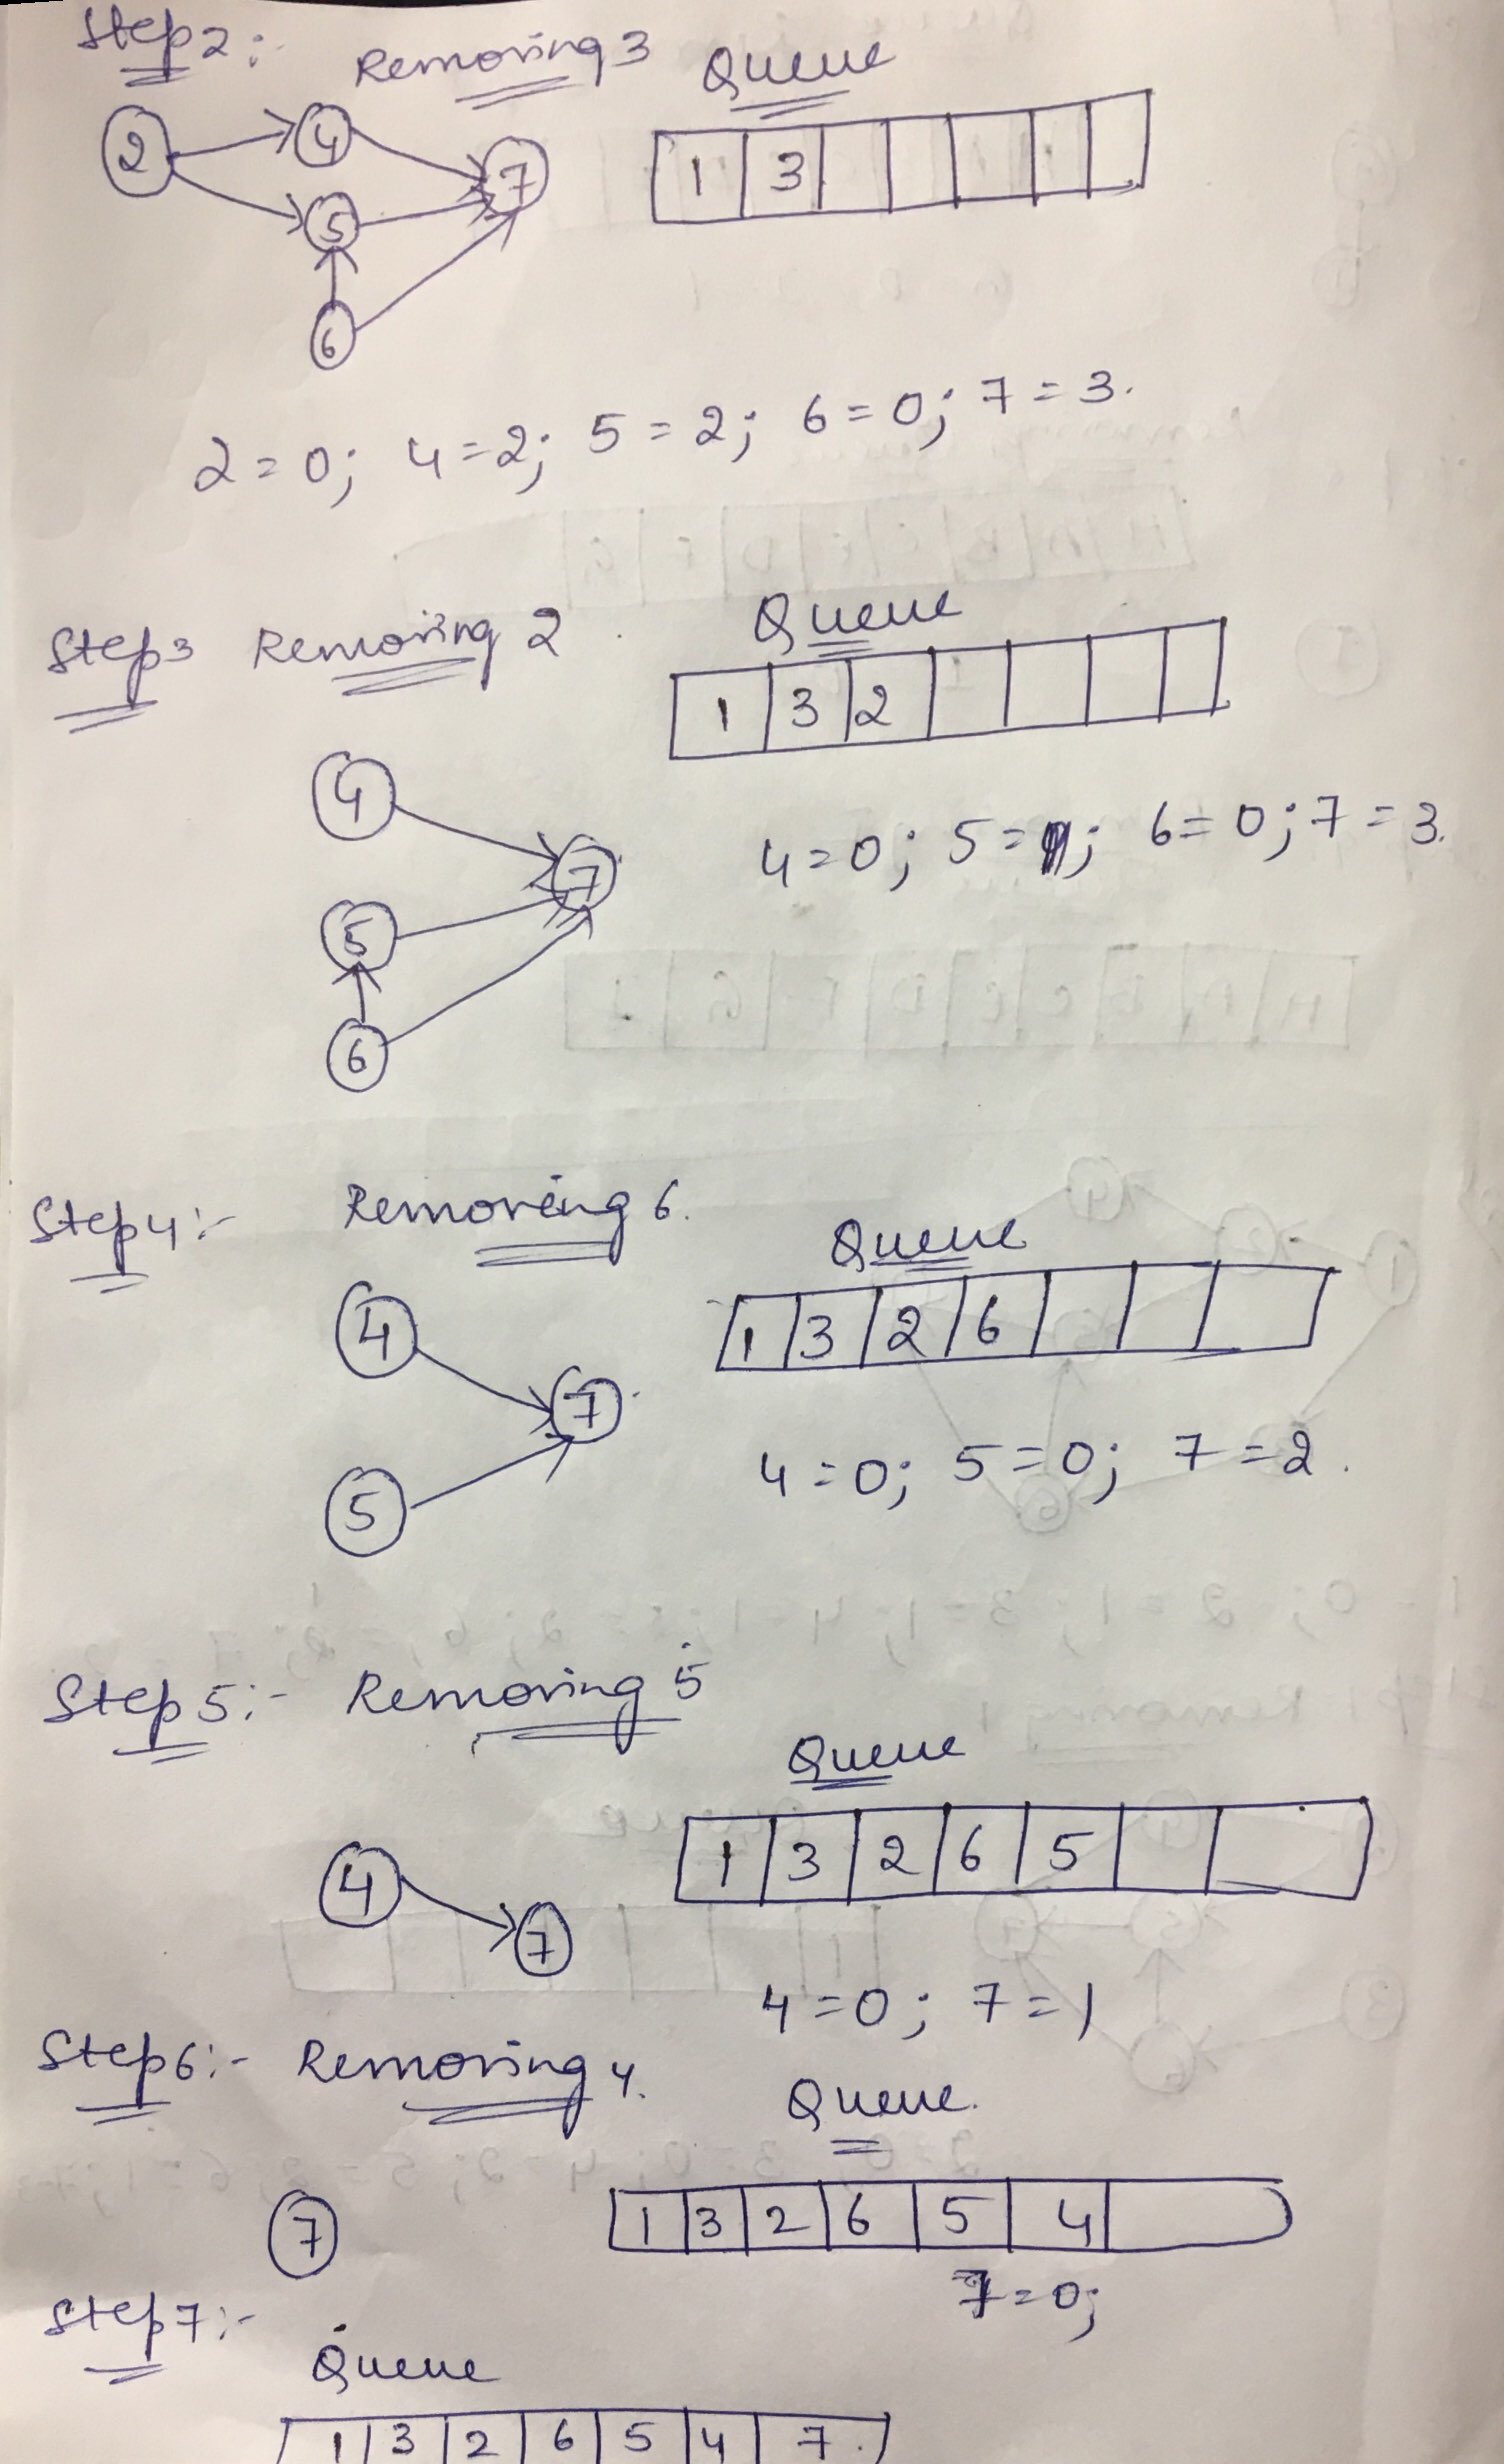 Step 2:- Removing 3 Queue
2 4 7 5 6
1 3
2 = 0; 4 = 2; 5 = 2; 6 = 0; 7 = 3.
Step 3 Removing 2 Queue
1 3 2
4 7 5 6
4 = 0; 5 = 1; 6 = 0; 7 = 3.
Step 4:- Removing 6. Queue
4 7 5
1 3 2 6
4 = 0; 5 = 0; 7 = 2.
Step 5:- Removing 5
Queue
1 3 2 6 5
4 7
4 = 0; 7 = 1
Step 6:- Removing 4. Queue.
7
1 3 2 6 5 4
7 = 0;
Step 7:-
Queue
1 3 2 6 5 4 7